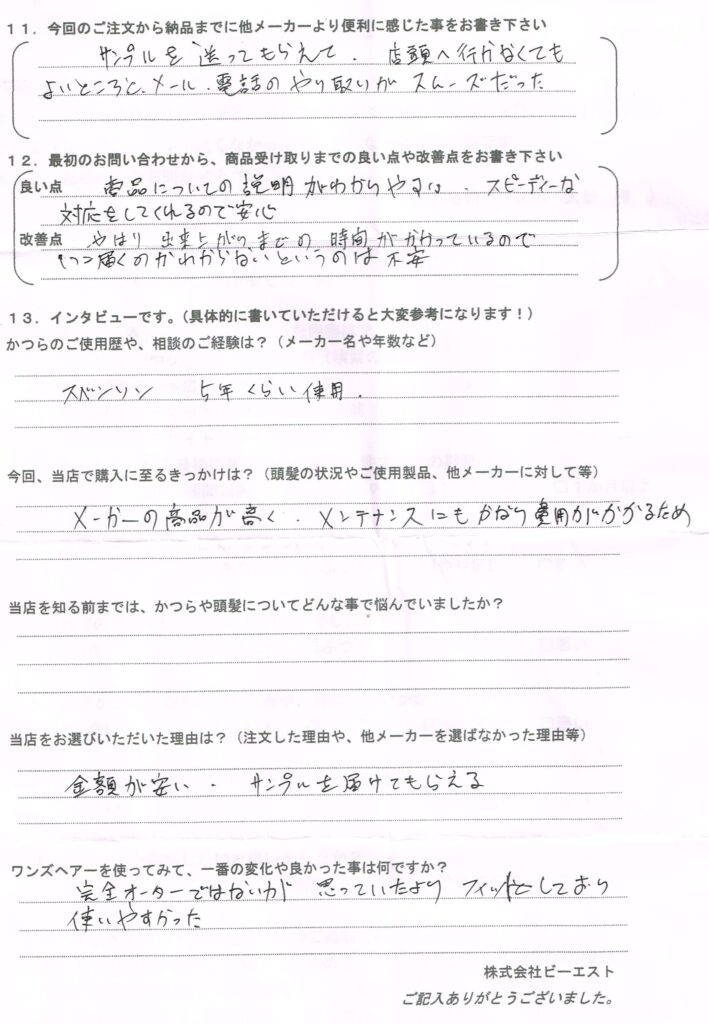 11．今回のご注文から納品までに他メーカーより便利に感じた事をお書き下さい
サンプルを送ってもらえて、店頭へ行かなくても
よいところと、メール、電話のやり取りがスムーズだった
12．最初のお問い合わせから、商品受け取りまでの良い点や改善点をお書き下さい
良い点 商品についての説明がわかりやすい、スピーディーな
対応をしてくれるので安心
改善点 やはり出来上がりまでの時間がかかっているので
いつ届くのかわからないというのは不安
13．インタビューです。（具体的に書いていただけると大変参考になります！）
かつらのご使用歴や、相談のご経験は？（メーカー名や年数など）
スベンソン 5年くらい使用．
今回、当店で購入に至るきっかけは？（頭髪の状況やご使用製品、他メーカーに対して等）
メーカーの商品が高く、メンテナンスにもかなり費用がかかるため
当店を知る前までは、かつらや頭髪についてどんな事で悩んでいましたか？
当店をお選びいただいた理由は？（注文した理由や、他メーカーを選ばなかった理由等）
金額が安い、サンプルを届けてもらえる
ワンズヘアーを使ってみて、一番の変化や良かった事は何ですか？
完全オーダーではないが 思っていたより フィットしており
使いやすかった
株式会社ビーエスト
ご記入ありがとうございました。